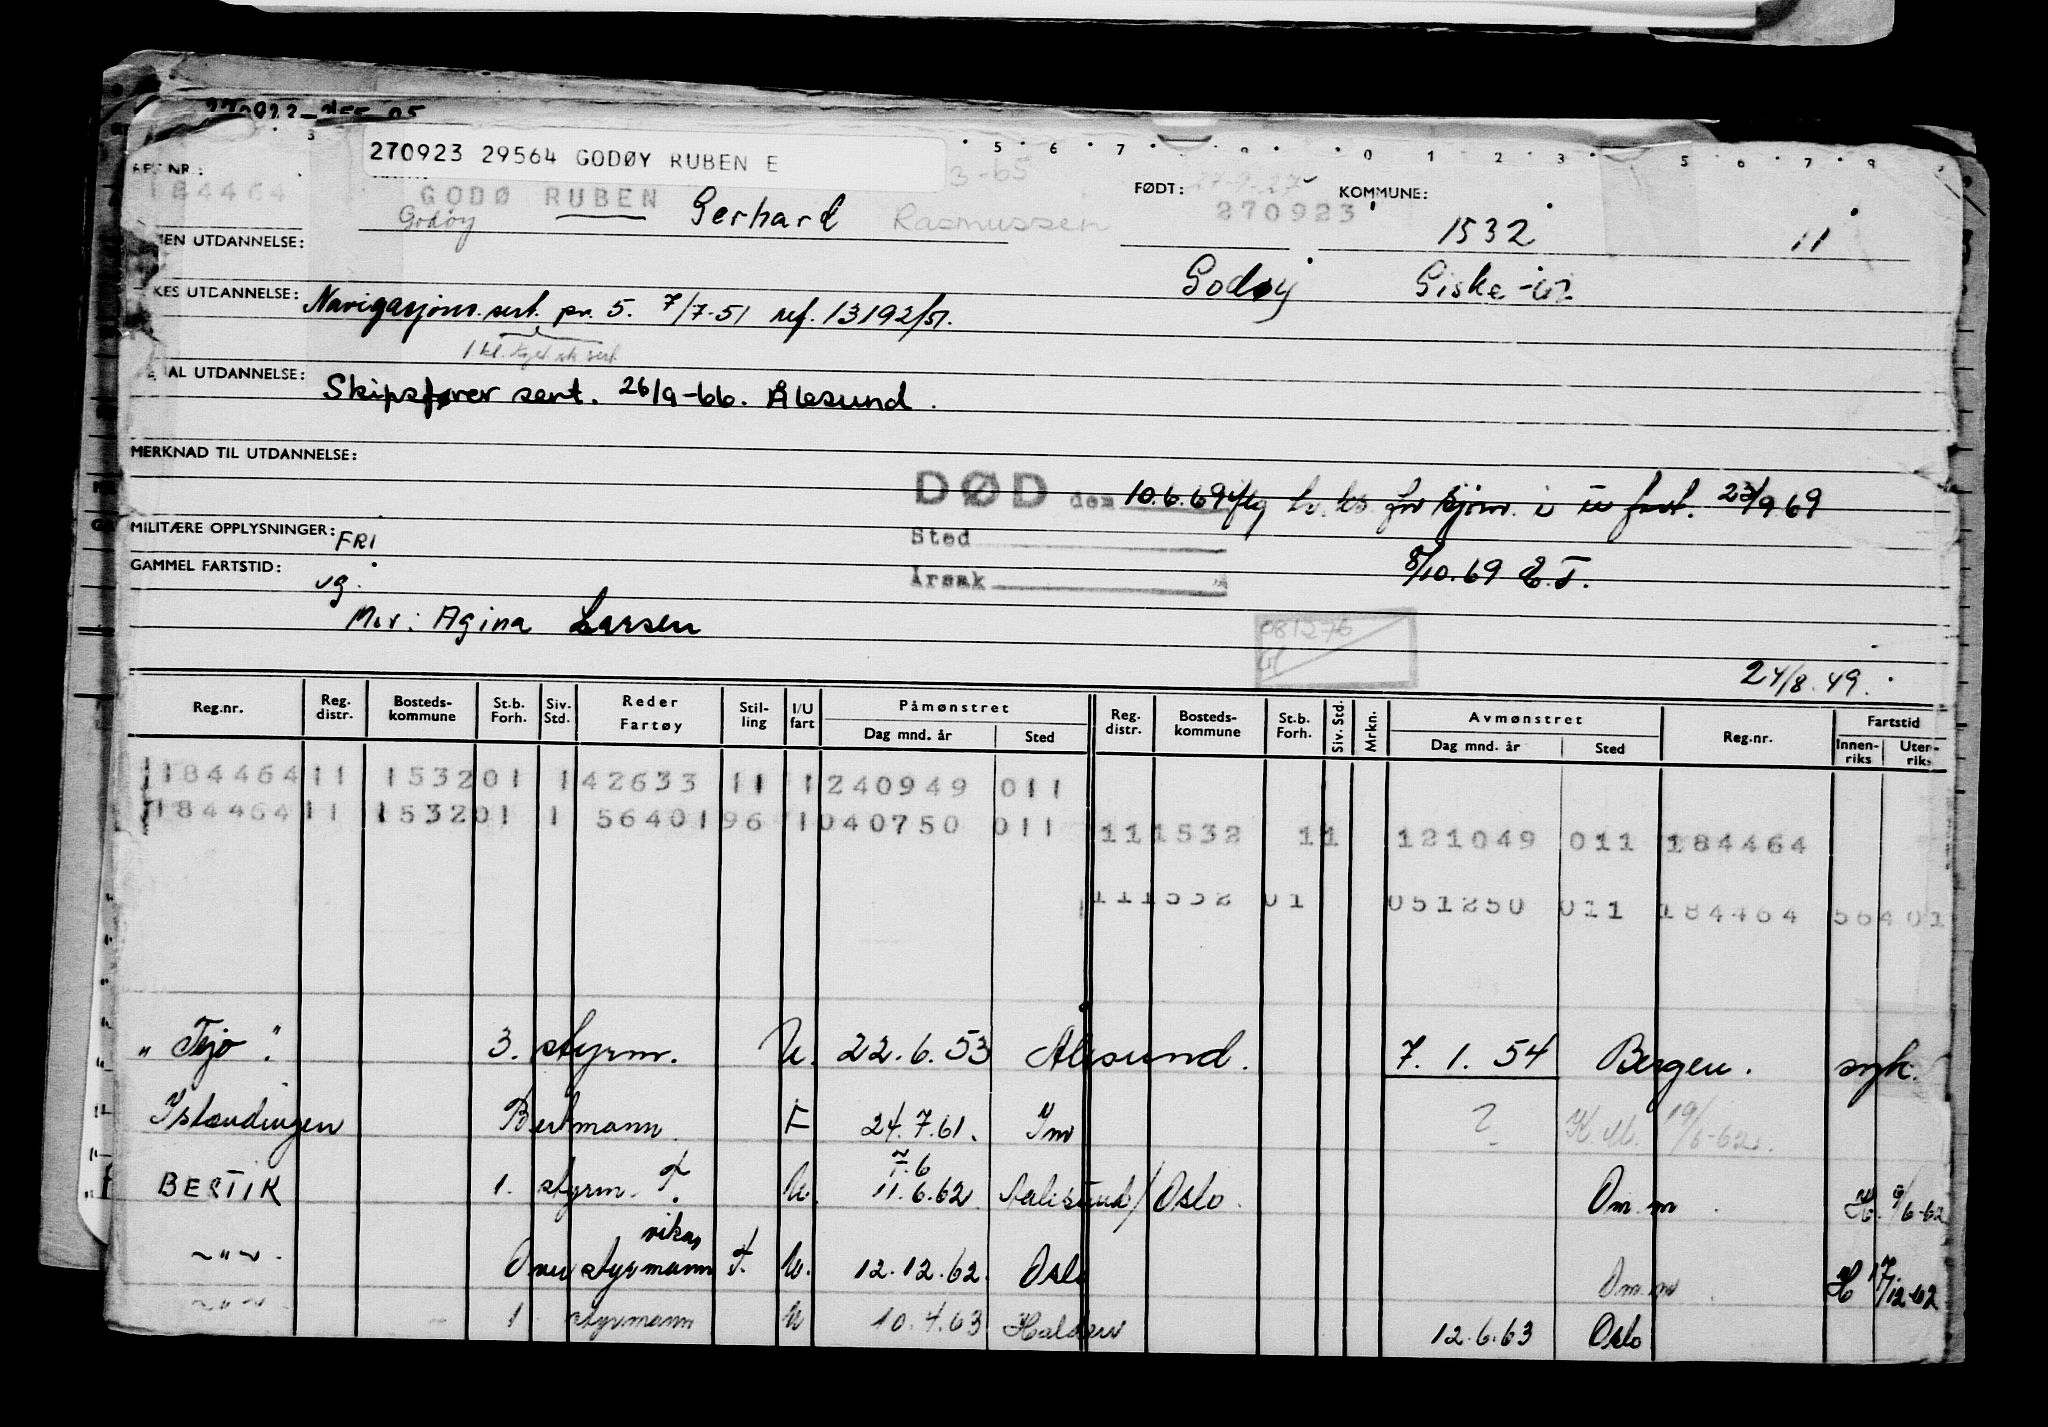 270923 29564 GODØY RUBEN E
REG. NR.:
184464
GODØ RUBEN Gerhard Rasmussen
Godøy
3-65
FØDT: 27-9-27
270923
KOMMUNE:
1532 11
Godøy Giske
MEN UTDANNELSE:
KES UTDANNELSE: Navigasjons.sert. pr. 5. 7/7-51 ref. 13192/51.
AL UTDANNELSE: Skipsfører sert. 26/9-66. Ålesund.
MERKNAD TIL UTDANNELSE:
DØD den 10.6.69 for sjøm. i u fart. 23/9 69
MILITÆRE OPPLYSNINGER: FRI
Sted
GAMMEL FARTSTID: ug.
Årsak
8/10.69 E.T.
Mor: Agina Larsen
081276
24/8.49.
Reg.nr. Reg. distr. Bosteds-kommune St.b. Forh. Siv. Std. Reder Fartøy Stil-ling I/U fart Påmønstret Dag mnd. år Sted Reg. distr. Bosteds-kommune St.b. Forh. Siv. Std. Mrkn. Avmønstret Dag mnd. år Sted Reg.nr. Fartstid Innen-riks Uten-riks
184464 11 1532 01 1 42633 11 1 240949 011
184464 11 1532 01 1 56401 96 1 040750 011
11 1532 11 121049 011 184464
11 1532 01 051250 011 184464 56401
"Tejo". 3. styrm. U. 22.6.53 Ålesund. 7.1.54 Bergen. syk.
Islendingen Bestmann. F 24.7.61. ? 19/6-62.
BESTIK 1. styrm. U. 11.6.62 Aalesund/Oslo. Om.m. 6-62
vikar
-"- Over styrmann U. 12.12.62. Oslo Om.m. 12-62
-"- 1 styrmann U 10.4.63 Halden 12.6.63 Oslo